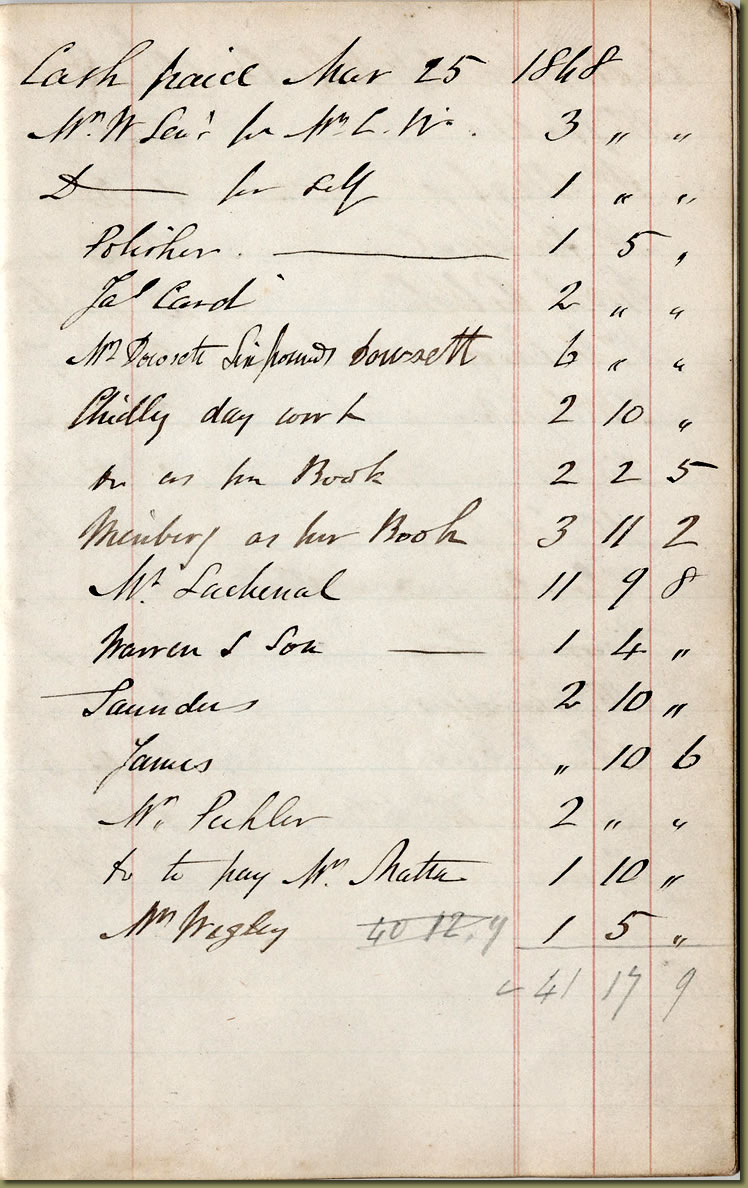 Cash paid Mar 25 1848
Mr. W for Mr. C. W. 3 " "
D—— for self 1 " "
Polisher. —— 1 5 "
Jas Card 2 " "
Mr Dowsett Six pounds Dowsett 6 " "
Chidley day work 2 10 "
Do as per Book 2 2 5
as per Book 3 11 2
Mr. Lachenal 11 9 8
Warren & Son —— 1 4 "
Saunders 2 10 "
James " 10 6
Mr. Pechler 2 " "
Do to pay Mr. 1 10 "
40 12. 9 1 5 "
41 17 9